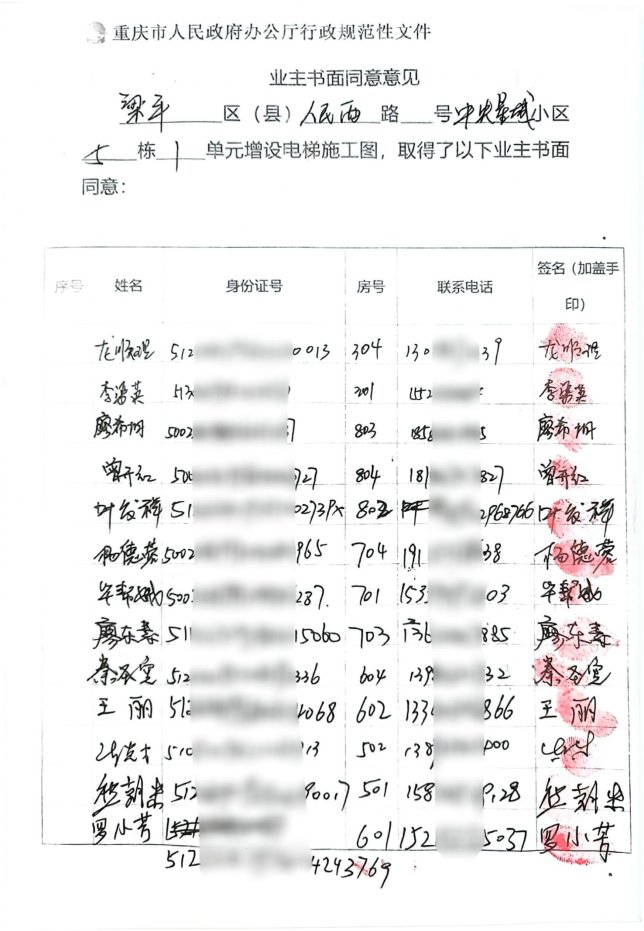 重庆市人民政府办公厅行政规范性文件
业主书面同意意见
梁平区（县）人民西路 号中央星城小区
5栋1单元增设电梯施工图，取得了以下业主书面
同意：
序号 姓名 身份证号 房号 联系电话 签名（加盖手印）
512 0013 304 130 39
李 英 513 201 152 李 英
廖希 5002 7 803 185 5 廖希
曾开红 500 927 804 181 827 曾开红
叶发祥 51 802 2968766 叶发祥
杨德蓉 5002 965 704 191 38 杨德蓉
500 287 701 153 03
廖东寿 511 15060 703 136 885 廖东寿
秦 512 336 604 139 32 秦
王丽 512 4068 602 1334 866 王丽
510 13 502 138 400
熊朝 512 90017 501 158 9128 熊朝
罗小芳 152 601 152 5037 罗小芳
512 4243769